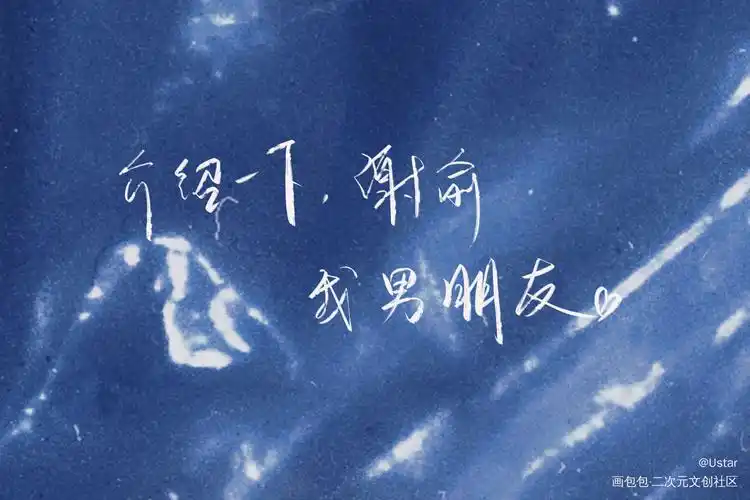 介绍一下，谢俞
我男朋友♡
@Ustar
画包包·二次元文创社区